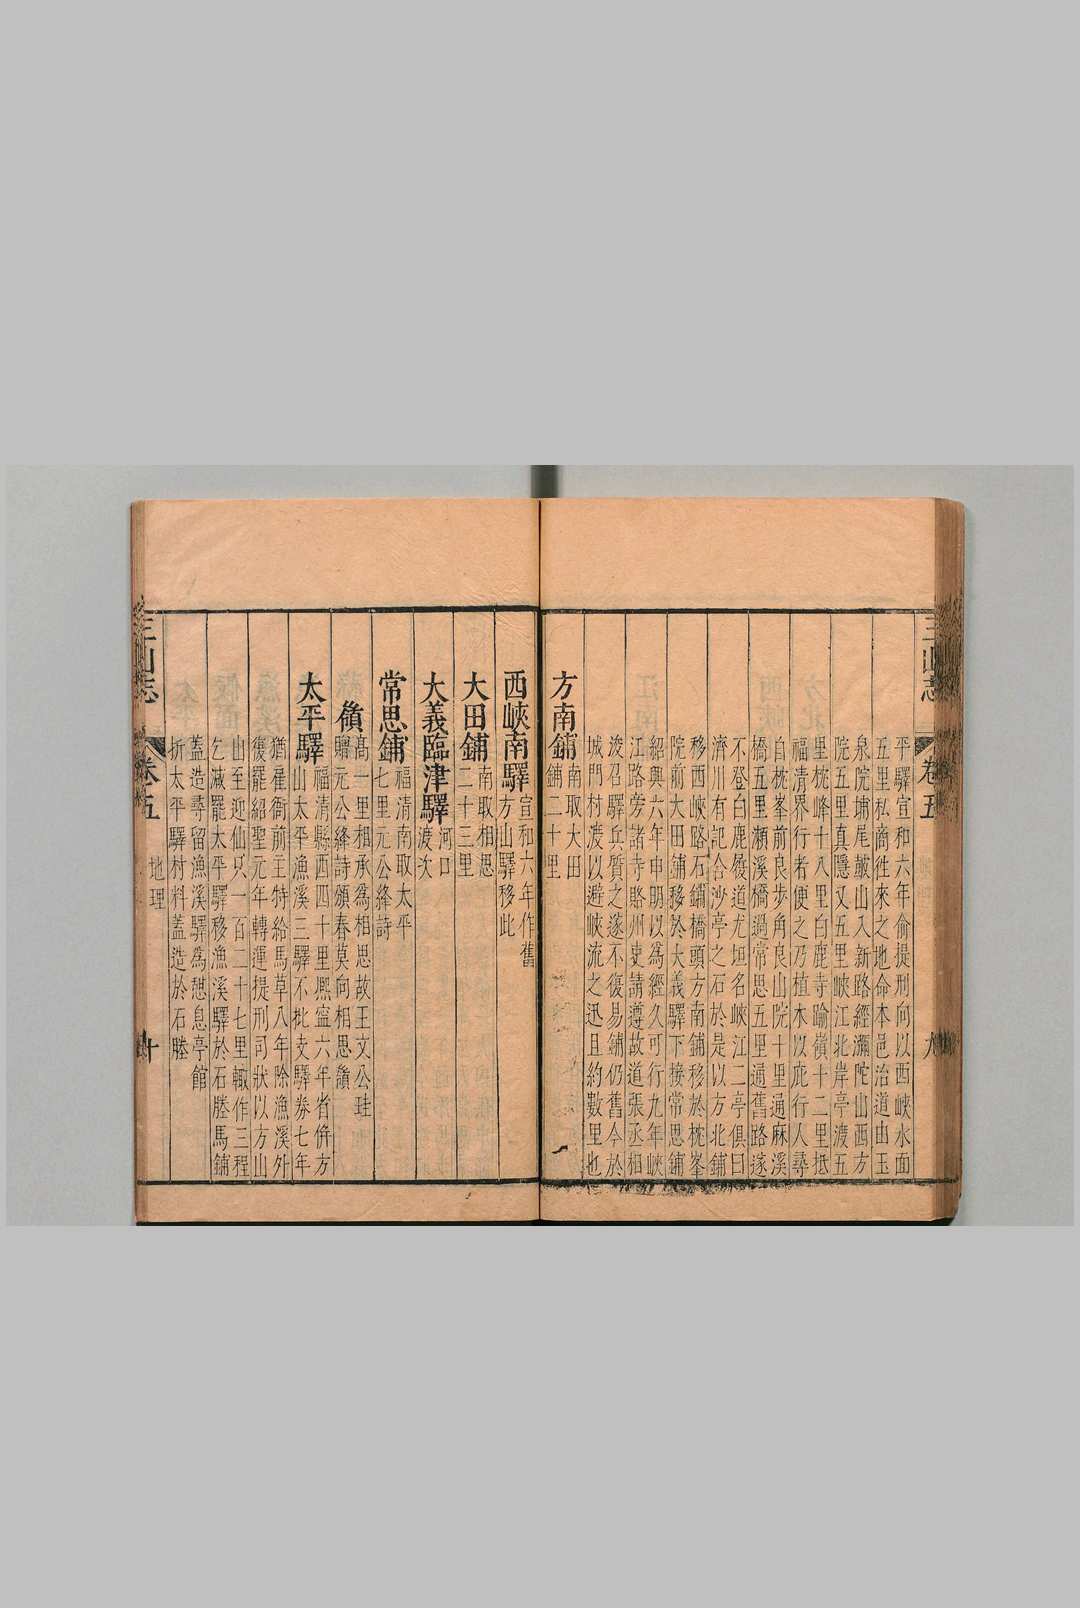 三山志
卷五
九
平驛宣和六年俞提刑向以西峽水面
五里私啇徃來之地命本邑治道由玉
泉院埔尾皷山出入新路經瀰陀山西方
院五里真隱又五里峽江北岸亭渡五
里枕峰十八里白鹿寺踰嶺十二里抵
福清界行者便之乃植木以庇行人尋
自枕峯前良步角良山院十里通麻溪
橋五里瀨溪橋過常思五里通舊路遂
不登白鹿殷道尤坦名峽江二亭俱曰
濟川有記合沙亭之石於是以方北鋪
移西峽路石鋪橋頭方南鋪移於枕峯
院前大田鋪移於大義驛下接常思鋪
紹興六年申明以爲經久可行九年峽
江路旁諸寺賂州吏請遵故道張丞相
浚召驛兵質之遂不復易鋪仍舊今於
城門村渡以避峽流之迅且約數里也
方南鋪
南取大田
鋪二十里
西峽南驛
宣和六年作舊
方山驛移此
大田鋪
南取相思
二十三里
大義臨津驛
河口
渡次
常思鋪
福清南取太平
七里元公絳詩
嶺
髙一里相承爲相思故王文公珪
贈元公絳詩頒春莫向相思嶺
太平驛
福清縣西四十里熈寍六年省併方
山太平漁溪三驛不批支驛劵七年
猶雇衙前主特給馬草八年除漁溪外
復罷紹聖元年轉運提刑司狀以方山
山至迎仙只一百二十七里輙作三程
乞减罷太平驛移漁溪驛於石塍馬鋪
蓋造尋留漁溪驛爲憇息亭館
折太平驛材料蓋造於石塍
地理
三山志
卷五
十